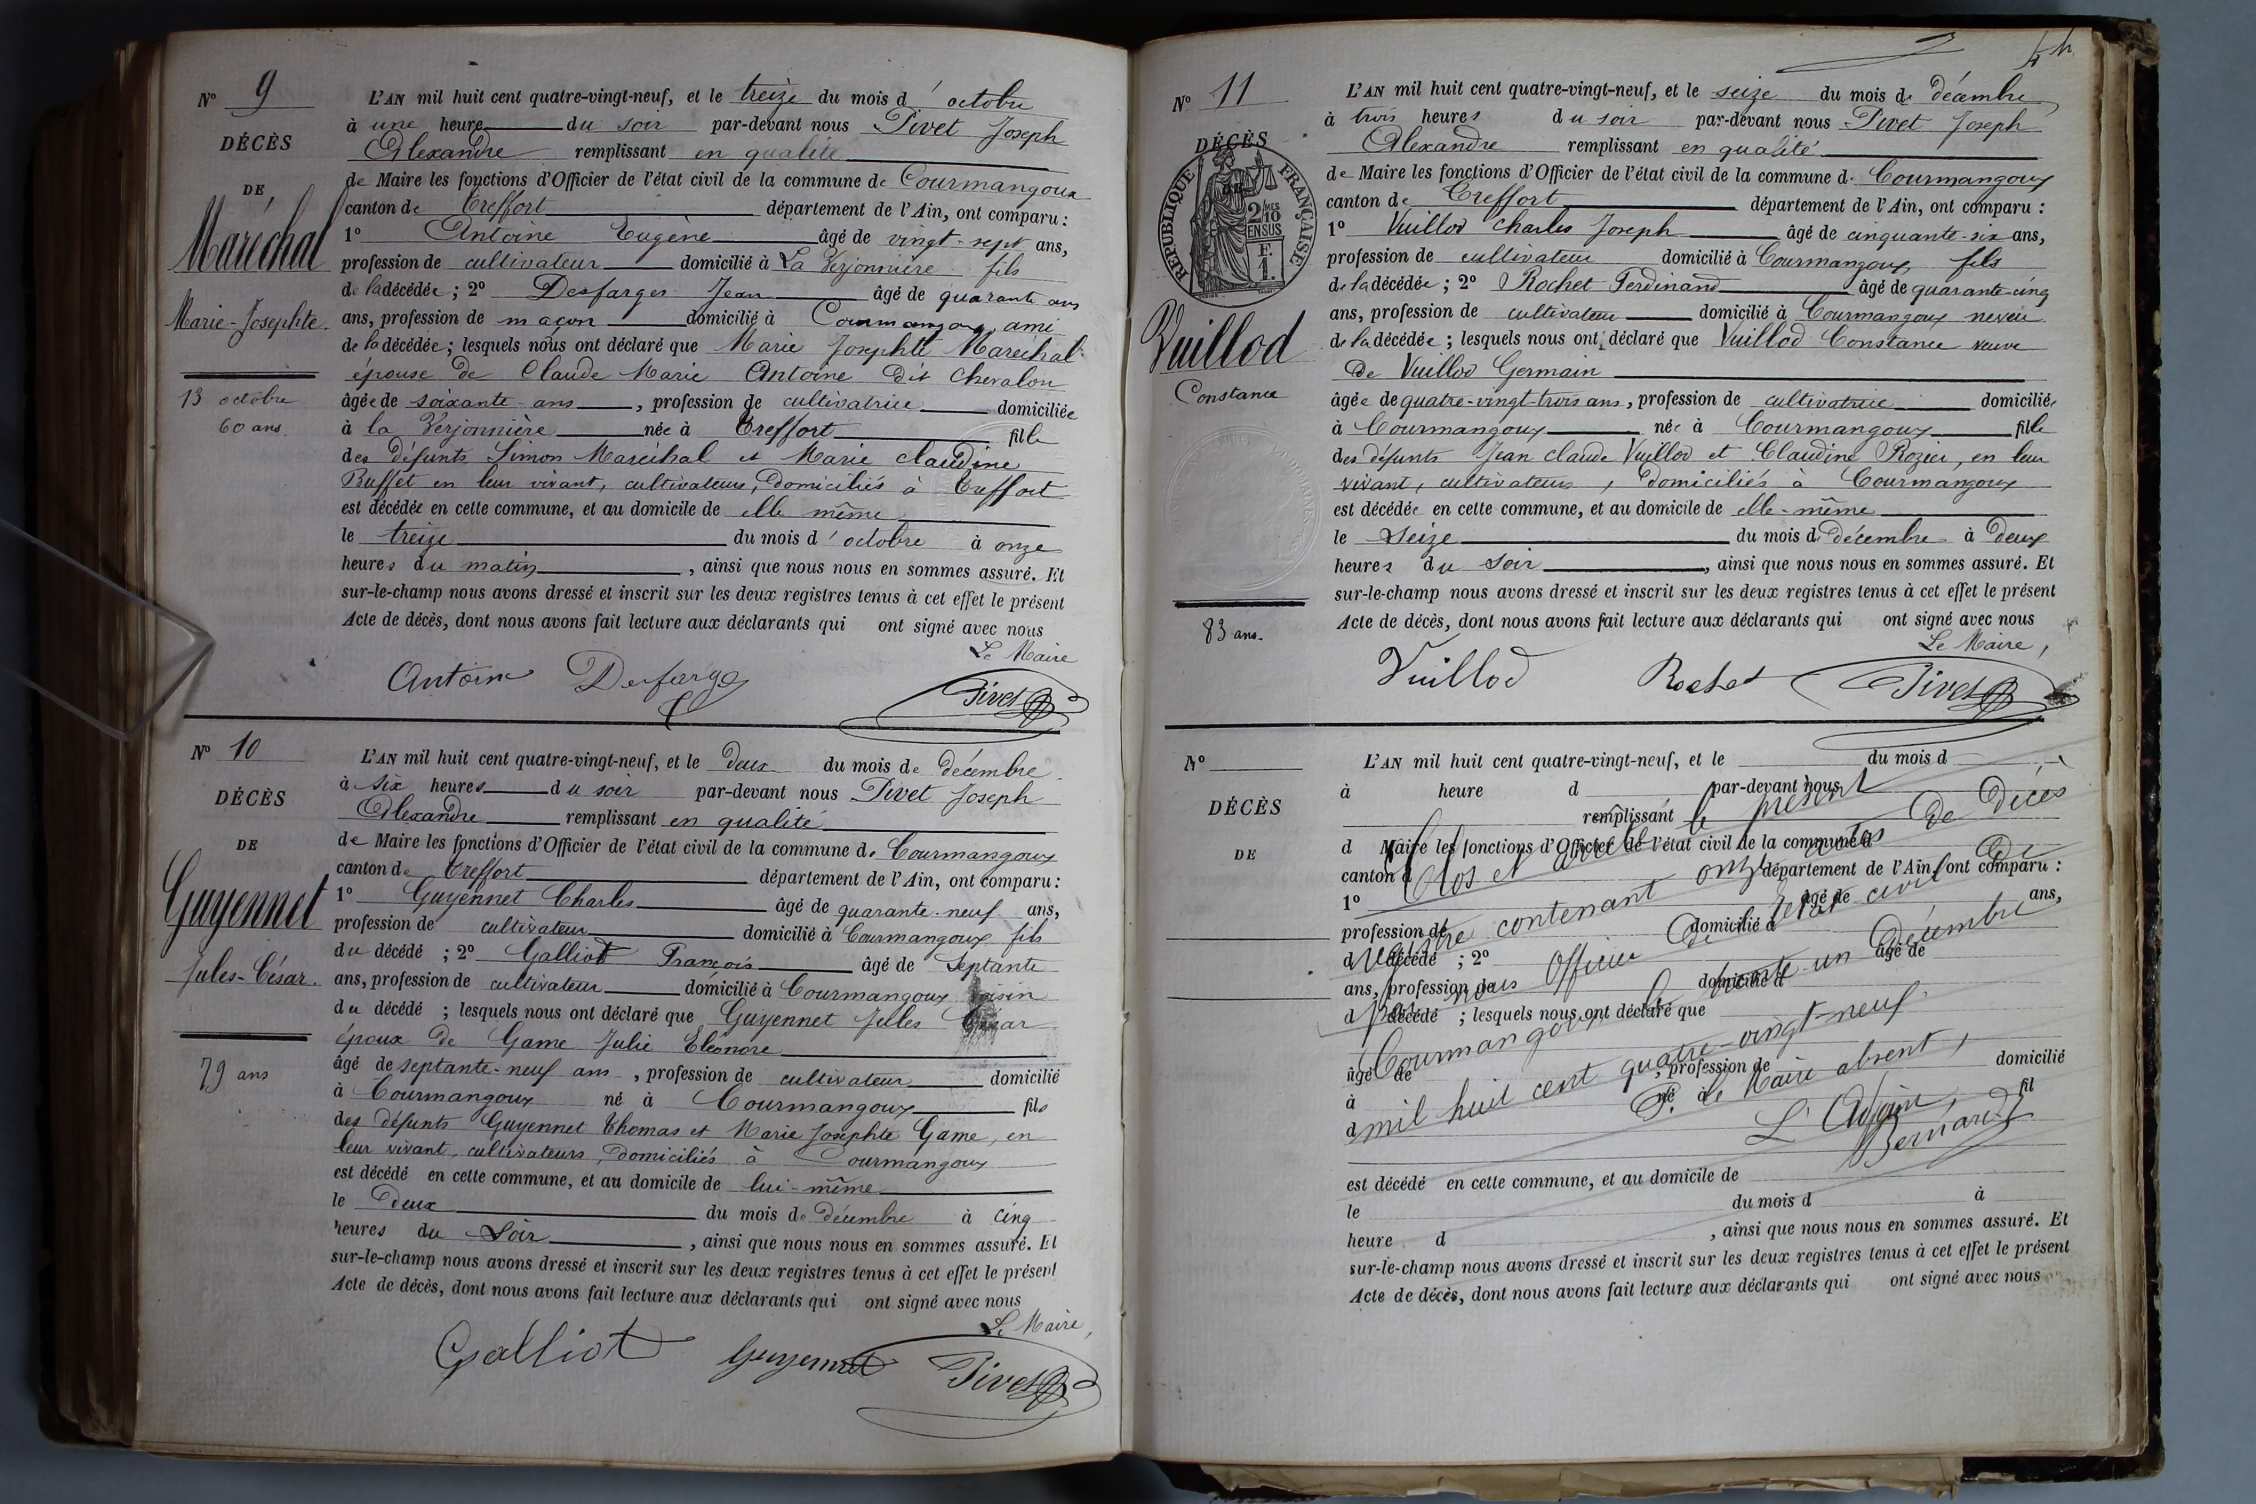 N° 9
DÉCÈS
DE
Maréchal
Marie-Josephte.
13 octobre
60 ans.
L'AN mil huit cent quatre-vingt-neuf, et le treize du mois d'octobre
à une heure du soir par-devant nous Pivet Joseph
Alexandre remplissant en qualité
de Maire les fonctions d'Officier de l'état civil de la commune de Courmangoux
canton de Treffort département de l'Ain, ont comparu :
1° Antoine Eugène âgé de vingt-sept ans,
profession de cultivateur domicilié à La Verjonnière fils
de la décédée ; 2° Desfarges Jean âgé de quarante ans
ans, profession de maçon domicilié à Courmangoux ami
de la décédée ; lesquels nous ont déclaré que Marie Josephte Maréchal
épouse de Claude Marie Antoine dit Chevalon
âgée de soixante ans, profession de cultivatrice domiciliée
à la Verjonnière née à Treffort fille
des défunts Simon Maréchal et Marie Claudine
Buffet en leur vivant, cultivateurs, domiciliés à Treffort
est décédée en cette commune, et au domicile de elle même
le treize du mois d'octobre à onze
heures du matin, ainsi que nous nous en sommes assuré. Et
sur-le-champ nous avons dressé et inscrit sur les deux registres tenus à cet effet le présent
Acte de décès, dont nous avons fait lecture aux déclarants qui ont signé avec nous
Le Maire
Antoine Desfarges Pivet
N° 10
DÉCÈS
DE
Guyennet
Jules-César.
79 ans
L'AN mil huit cent quatre-vingt-neuf, et le deux du mois de décembre
à six heures du soir par-devant nous Pivet Joseph
Alexandre remplissant en qualité
de Maire les fonctions d'Officier de l'état civil de la commune de Courmangoux
canton de Treffort département de l'Ain, ont comparu :
1° Guyennet Charles âgé de quarante-neuf ans,
profession de cultivateur domicilié à Courmangoux fils
du décédé ; 2° Galliot François âgé de septante
ans, profession de cultivateur domicilié à Courmangoux voisin
du décédé ; lesquels nous ont déclaré que Guyennet Jules César
époux de Game Julie Eléonore
âgé de septante-neuf ans, profession de cultivateur domicilié
à Courmangoux né à Courmangoux fils
des défunts Guyennet Thomas et Marie Josephte Game, en
leur vivant, cultivateurs, domiciliés à Courmangoux
est décédé en cette commune, et au domicile de lui-même
le deux du mois de décembre à cinq
heures du soir, ainsi que nous nous en sommes assuré. Et
sur-le-champ nous avons dressé et inscrit sur les deux registres tenus à cet effet le présent
Acte de décès, dont nous avons fait lecture aux déclarants qui ont signé avec nous
Le Maire,
Galliot Guyennet Pivet
N° 11
DÉCÈS
RÉPUBLIQUE FRANÇAISE
2/10MES
EN SUS
F.
1.
Vuillod
Constance
83 ans.
L'AN mil huit cent quatre-vingt-neuf, et le seize du mois de décembre,
à trois heures du soir par-devant nous Pivet Joseph
Alexandre remplissant en qualité
de Maire les fonctions d'Officier de l'état civil de la commune d. Courmangoux
canton de Treffort département de l'Ain, ont comparu :
1° Vuillod Charles Joseph âgé de cinquante-six ans,
profession de cultivateur domicilié à Courmangoux fils
de la décédée ; 2° Rochet Ferdinand âgé de quarante-cinq
ans, profession de cultivateur domicilié à Courmangoux neveu
de la décédée ; lesquels nous ont déclaré que Vuillod Constance veuve
de Vuillod Germain
âgée de quatre-vingt-trois ans, profession de cultivatrice domiciliée
à Courmangoux née à Courmangoux fille
des défunts Jean Claude Vuillod et Claudine Rozier, en leur
vivant, cultivateurs, domiciliés à Courmangoux
est décédée en cette commune, et au domicile de elle-même
le seize du mois de décembre à deux
heures du soir, ainsi que nous nous en sommes assuré. Et
sur-le-champ nous avons dressé et inscrit sur les deux registres tenus à cet effet le présent
Acte de décès, dont nous avons fait lecture aux déclarants qui ont signé avec nous
Le Maire,
Vuillod Rochet Pivet
N°
DÉCÈS
DE
L'AN mil huit cent quatre-vingt-neuf, et le du mois d
à heure d par-devant nous
remplissant
d Maire les fonctions d'Officier de l'état civil de la commune d
canton d département de l'Ain, ont comparu :
1° âgé de ans,
profession de domicilié à
d décédé ; 2° âgé de
ans, profession de domicilié à
d décédé ; lesquels nous ont déclaré que
âgé de , profession de domicilié
à né à fil
d
est décédé en cette commune, et au domicile de
le du mois d à
heure d , ainsi que nous nous en sommes assuré. Et
sur-le-champ nous avons dressé et inscrit sur les deux registres tenus à cet effet le présent
Acte de décès, dont nous avons fait lecture aux déclarants qui ont signé avec nous
Clos et arrêté le présent
registre contenant onze actes de Décès
par nous Officier de l'état civil de
Courmangoux le trente-un décembre
mil huit cent quatre-vingt-neuf.
P. le Maire absent,
L'Adjoint,
Bernard